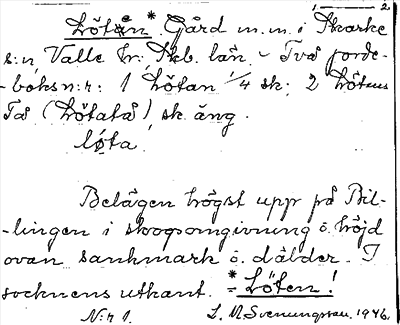 1 — 2
Lötån* Gård m.m. i Skarke
s:n, Valle hr; Skb. län. - Två jorde-
-boksn:r: 1 Lötan 1/4 sk; 2 Lötens
Tå (Lötatå), sk. äng.
løta.
Belägen högst upp på Bil-
-lingen i skogsomgivning o. höjd
ovan sankmark o. dälder. I
socknens utkant. *= Löten!
N:r 1. L. M. Svenungsson. 1946.